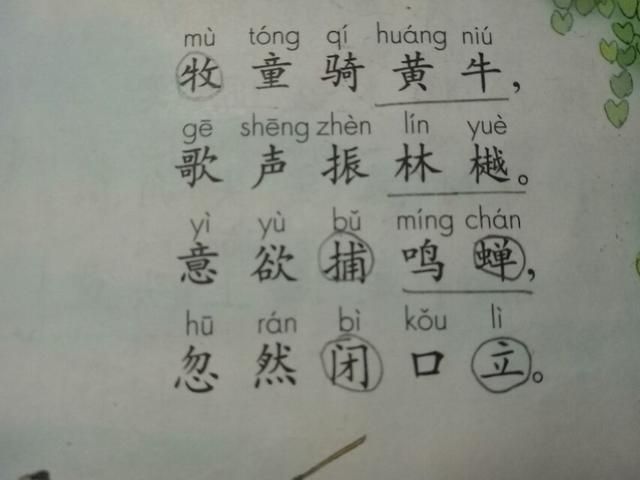 mù tóng qí huáng niú
牧童骑黄牛，
gē shēng zhèn lín yuè
歌声振林樾。
yì yù bǔ míng chán
意欲捕鸣蝉，
hū rán bì kǒu lì
忽然闭口立。